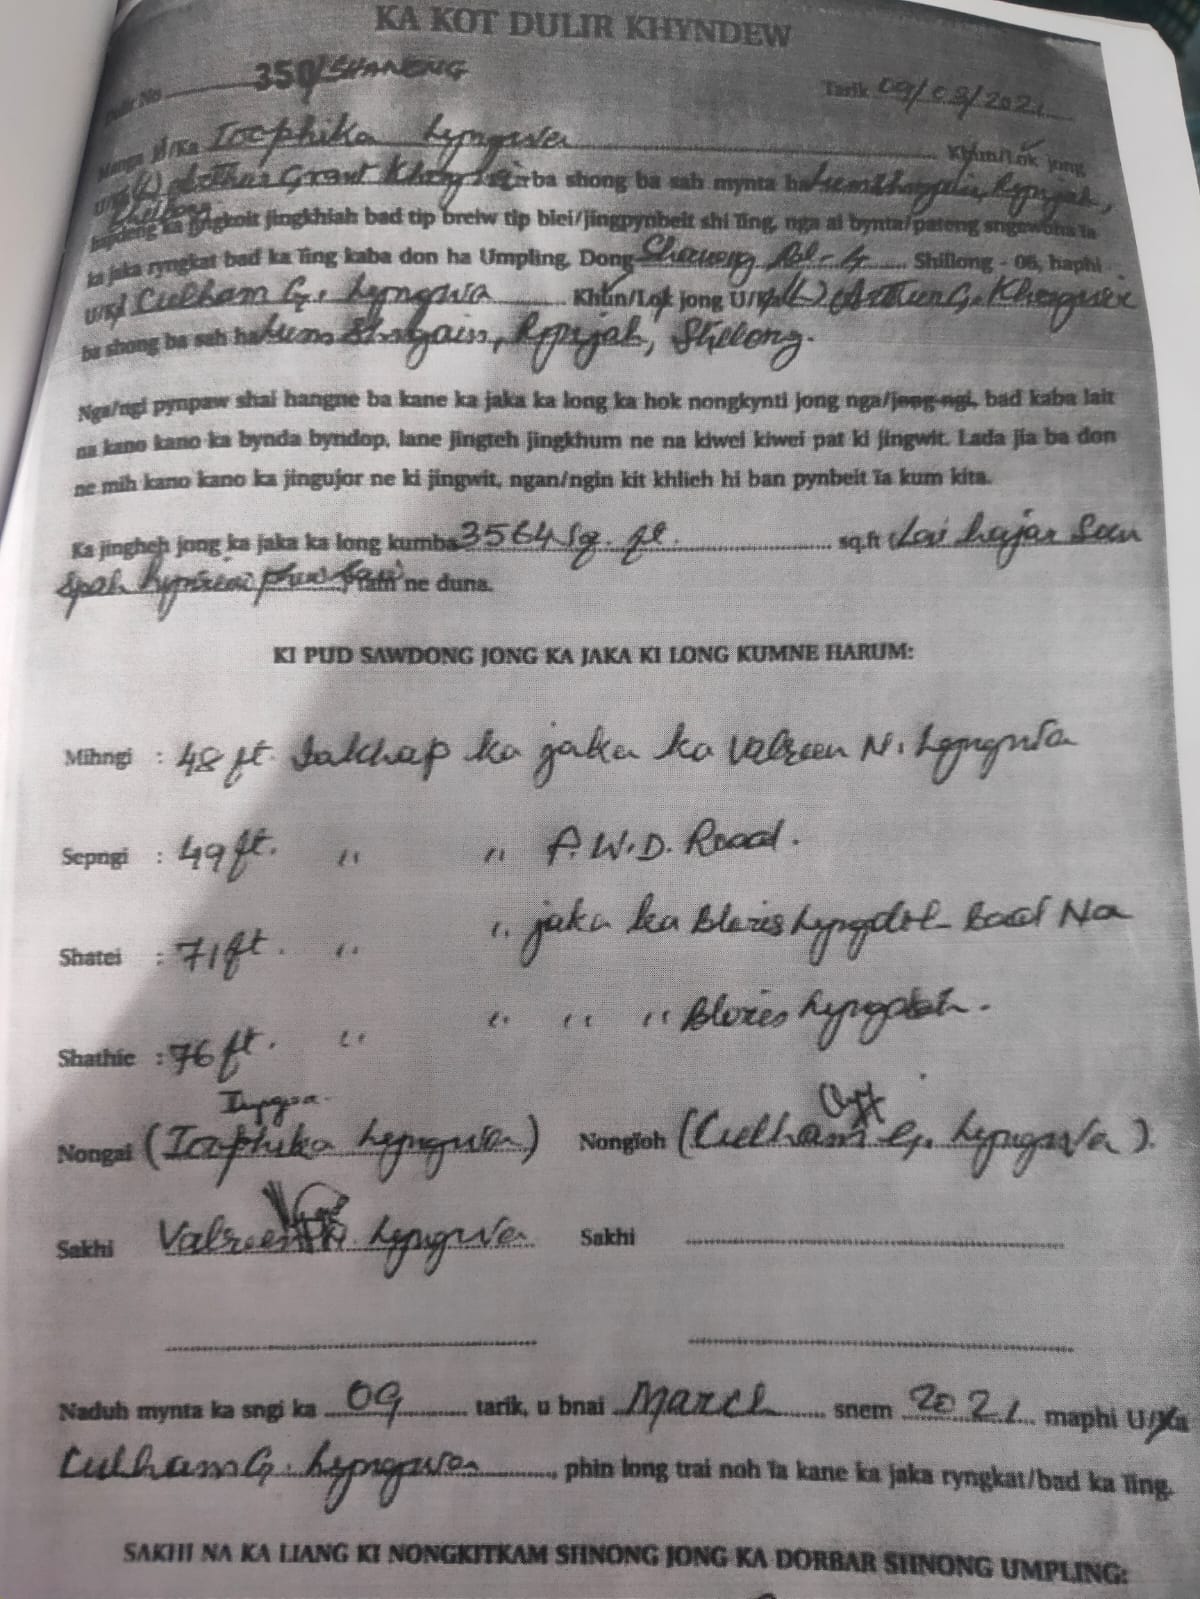 KA KOT DULIR KHYNDEW
Dulir No 350/SHANENG Tarik 09/03/2021
Manga U/Ka Ioaphika Lyngwa Khun/Lok jong
U/Ka (L) Arthur Grant ba shong ba sah mynta ha
Shillong
hapdeng ka jingkoit jingkhiah bad tip breiw tip blei/jingpynbeit shi ïing, nga ai bynta/pateng sngewbha ïa
ka jaka ryngkat bad ka ïing kaba don ha Umpling, Dong Shillong - 06, haphi
U/Ka Culham G. Lyngwa Khun/Lok jong U/Ka (L) Arthur G.
ba shong ba sah ha Shillong.
Nga/ngi pynpaw shai hangne ba kane ka jaka ka long ka hok nongkynti jong nga/jong ngi, bad kaba lait
na kano kano ka bynda byndop, lane jingteh jingkhum ne na kiwei kiwei pat ki jingwit. Lada jia ba don
ne mih kano kano ka jingujor ne ki jingwit, ngan/ngin kit khlieh hi ban pynbeit ïa kum kita.
Ka jingheh jong ka jaka ka long kumba 3564 sq. ft. sq.ft (Lai hajar San
Spah hynriew phew saw) tam ne duna.
KI PUD SAWDONG JONG KA JAKA KI LONG KUMNE HARUM:
Mihngi : 48 ft. Iakhap ka jaka ka Valreen N. Lyngwa
Sepngi : 49 ft. " " P.W.D. Road.
Shatei : 71 ft. " " jaka ka Lyngdoh Bad Na
Shathie : 76 ft. " " " " Lyngdoh.
Nongai (Ioaphika Lyngwa) Nongïoh (Culham G. Lyngwa).
Sakhi Valreen N. Lyngwa Sakhi
Naduh mynta ka sngi ka 09 tarik, u bnai March snem 2021 maphi U/Ka
Culham G. Lyngwa, phin long trai noh ïa kane ka jaka ryngkat/bad ka ïing.
SAKHI NA KA LIANG KI NONGKITKAM SHNONG JONG KA DORBAR SHNONG UMPLING: